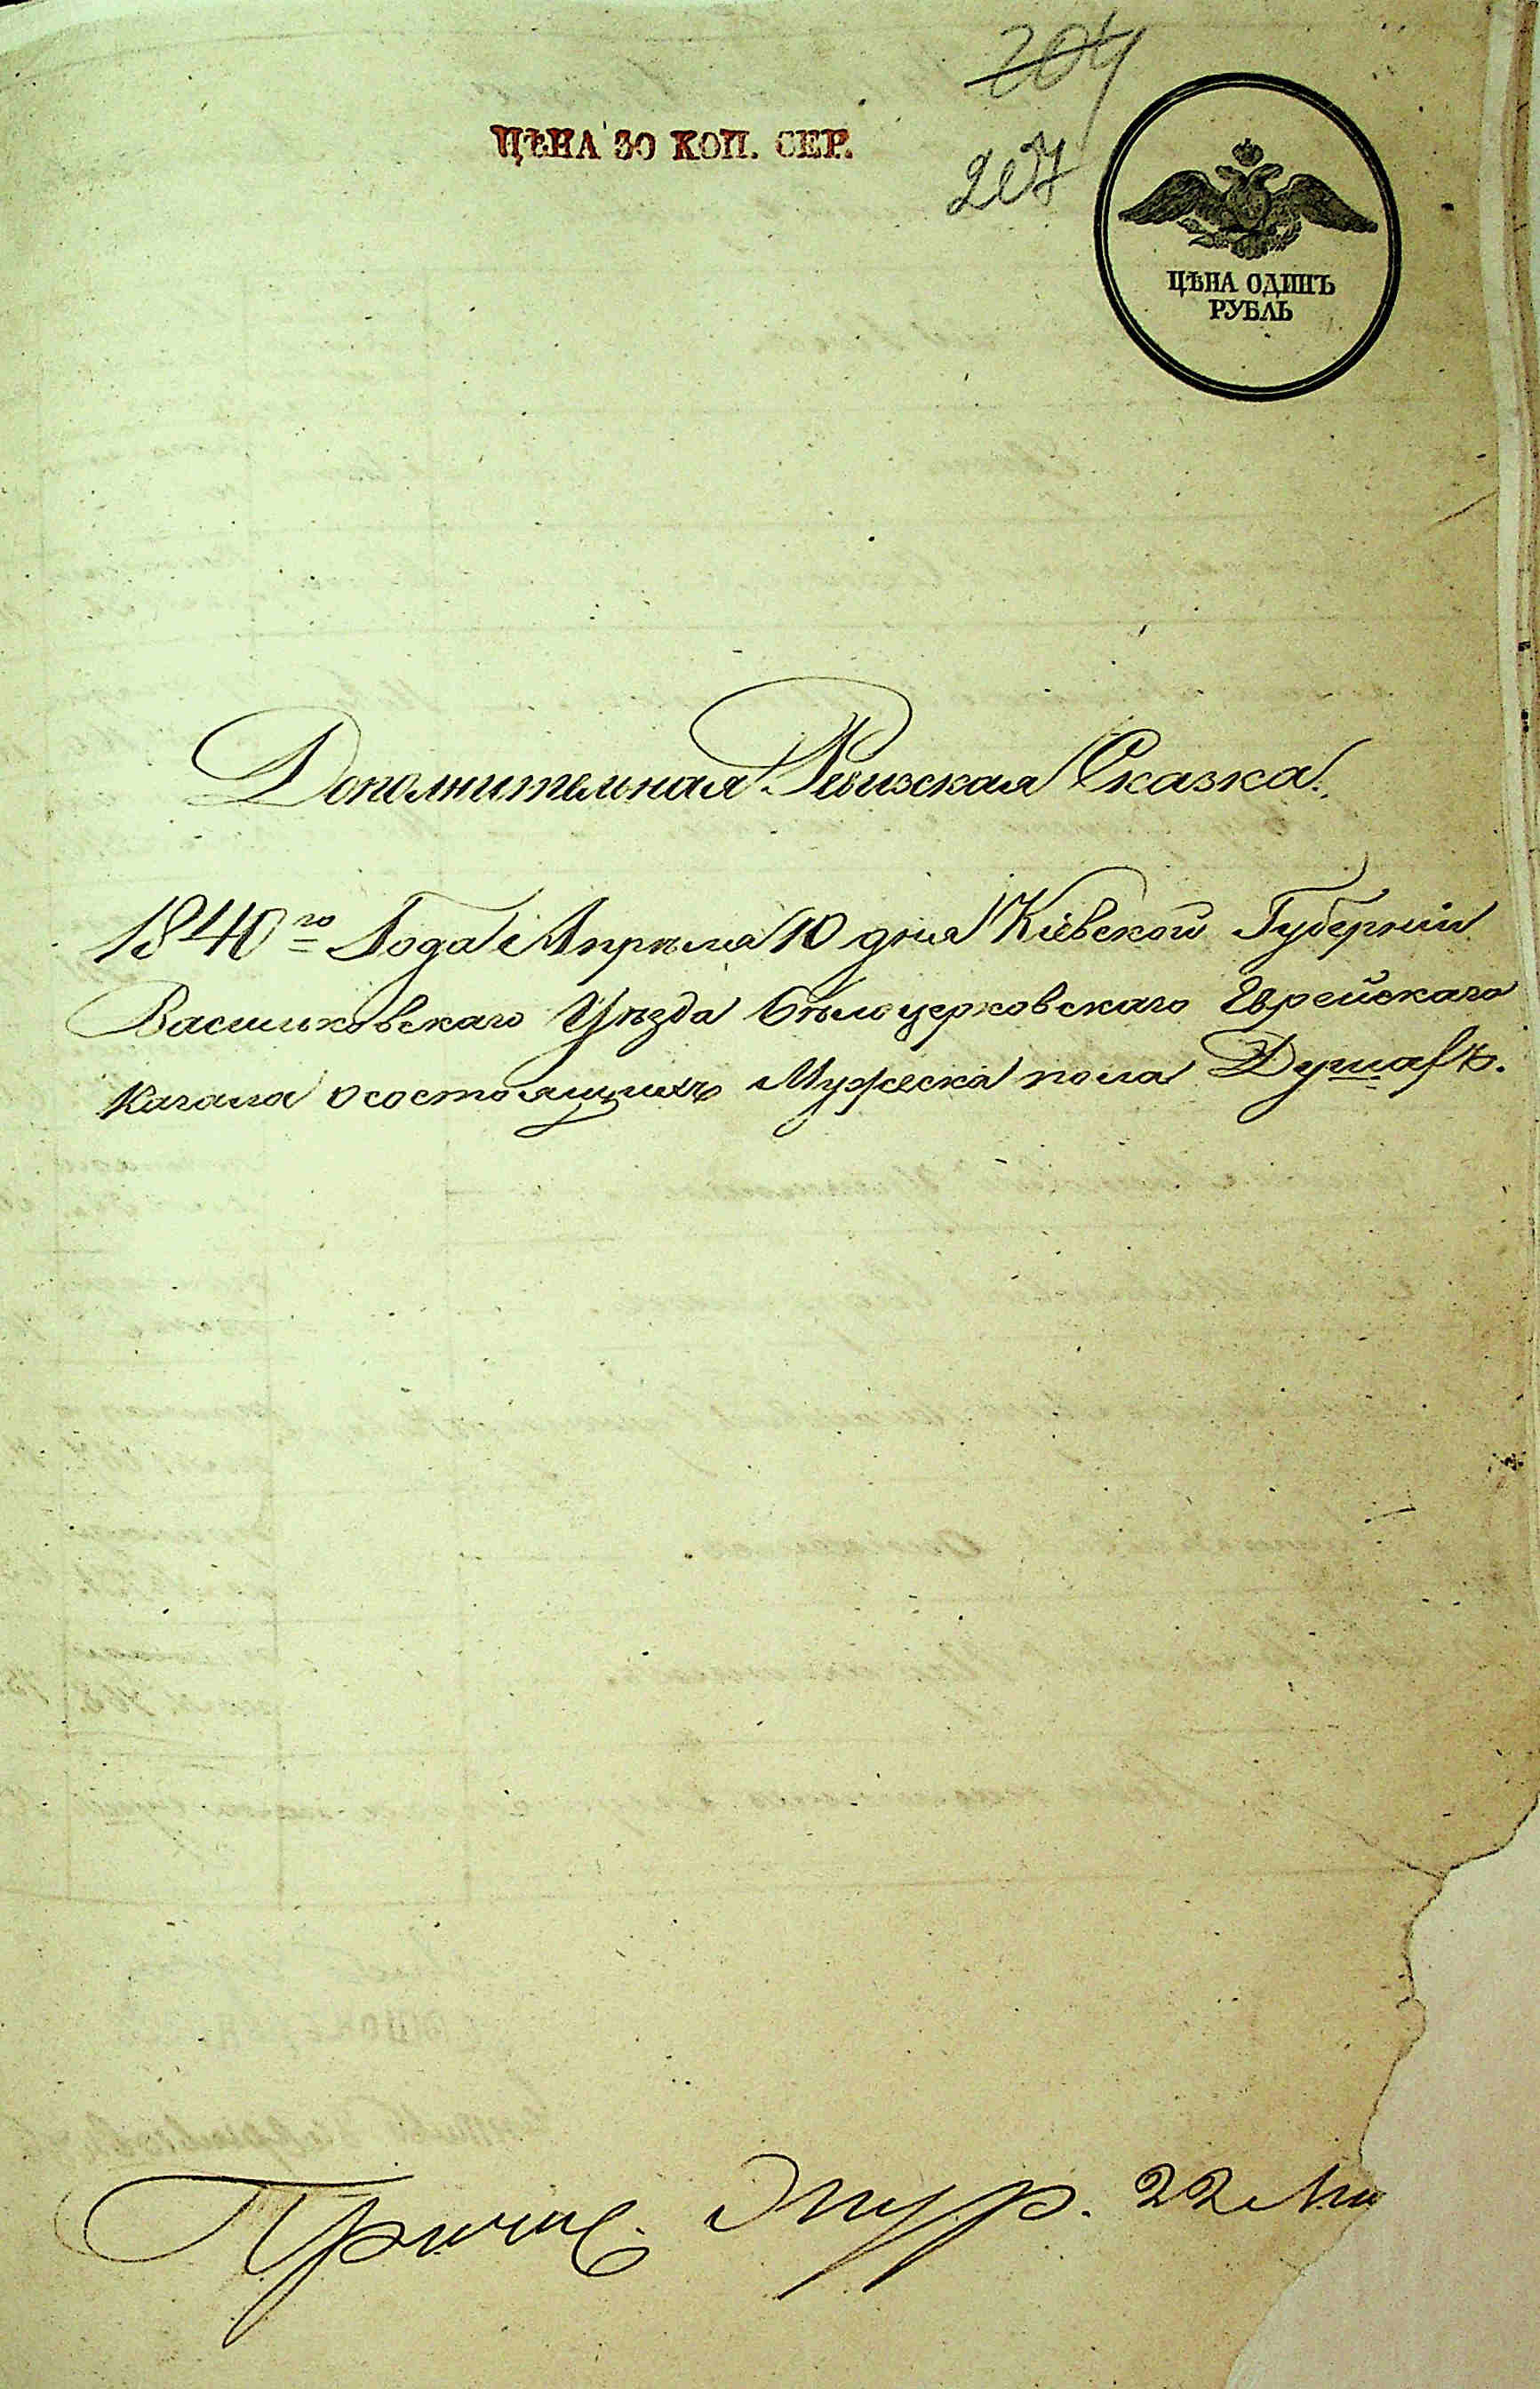 204
ЦѢНА 30 КОП. СЕР.
207
ЦѢНА ОДИНЪ
РУБЛЬ
Дополнительная Ревизская Сказка.
1840го Года Апрѣля 10 дня Кіевской Губерніи
Васильковскаго Уѣзда Бѣлоцерковскаго Еврейскаго
Кагала о состоящихъ Мужеска пола Душахъ.
22